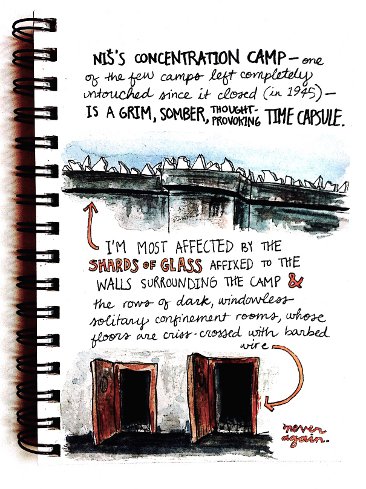 NIŠ'S CONCENTRATION CAMP – one
of the few camps left completely
untouched since it closed (in 1945) –
IS A GRIM, SOMBER, THOUGHT-PROVOKING TIME CAPSULE.
I'M MOST AFFECTED BY THE
SHARDS OF GLASS AFFIXED TO THE
WALLS SURROUNDING THE CAMP &
the rows of dark, windowless
solitary confinement rooms, whose
floors are criss-crossed with barbed
wire
never
again.